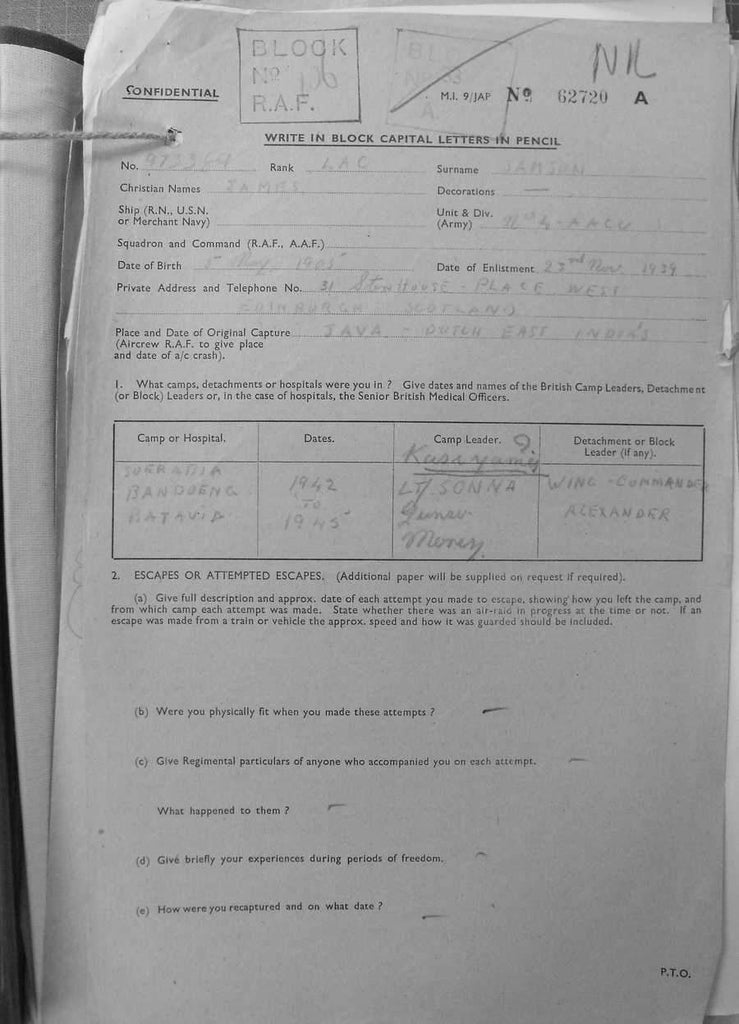 BLOCK
No 106
R.A.F.
NIL
CONFIDENTIAL
M.I. 9/JAP No 62720 A
WRITE IN BLOCK CAPITAL LETTERS IN PENCIL
No. Rank LAC Surname
Christian Names JAMES Decorations —
Ship (R.N., U.S.N. or Merchant Navy)
Unit & Div. (Army)
Squadron and Command (R.A.F., A.A.F.)
Date of Birth 5 May 1905 Date of Enlistment 23nd Nov. 1939
Private Address and Telephone No. 31 STENHOUSE - PLACE WEST
EDINBURGH SCOTLAND
Place and Date of Original Capture JAVA - DUTCH EAST INDIA'S
(Aircrew R.A.F. to give place
and date of a/c crash).
1. What camps, detachments or hospitals were you in ? Give dates and names of the British Camp Leaders, Detachment
(or Block) Leaders or, in the case of hospitals, the Senior British Medical Officers.
Camp or Hospital. Dates. Camp Leader. Detachment or Block Leader (if any).
SOERABJA
BANDOENG 1942 LT SONNA WING - COMMANDER
BATAVIA TO 1945 ALEXANDER
2. ESCAPES OR ATTEMPTED ESCAPES. (Additional paper will be supplied on request if required).
(a) Give full description and approx. date of each attempt you made to escape, showing how you left the camp, and
from which camp each attempt was made. State whether there was an air-raid in progress at the time or not. If an
escape was made from a train or vehicle the approx. speed and how it was guarded should be included.
(b) Were you physically fit when you made these attempts ? —
(c) Give Regimental particulars of anyone who accompanied you on each attempt. —
What happened to them ? —
(d) Give briefly your experiences during periods of freedom. —
(e) How were you recaptured and on what date ? —
P.T.O.